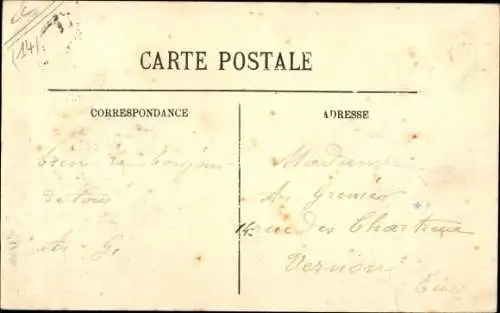 (14)
CARTE POSTALE
CORRESPONDANCE
ADRESSE
bien bonjour
de tous
A. G.
Madame
A. Grenier
14 rue des Chartreux
Vernon
Eure